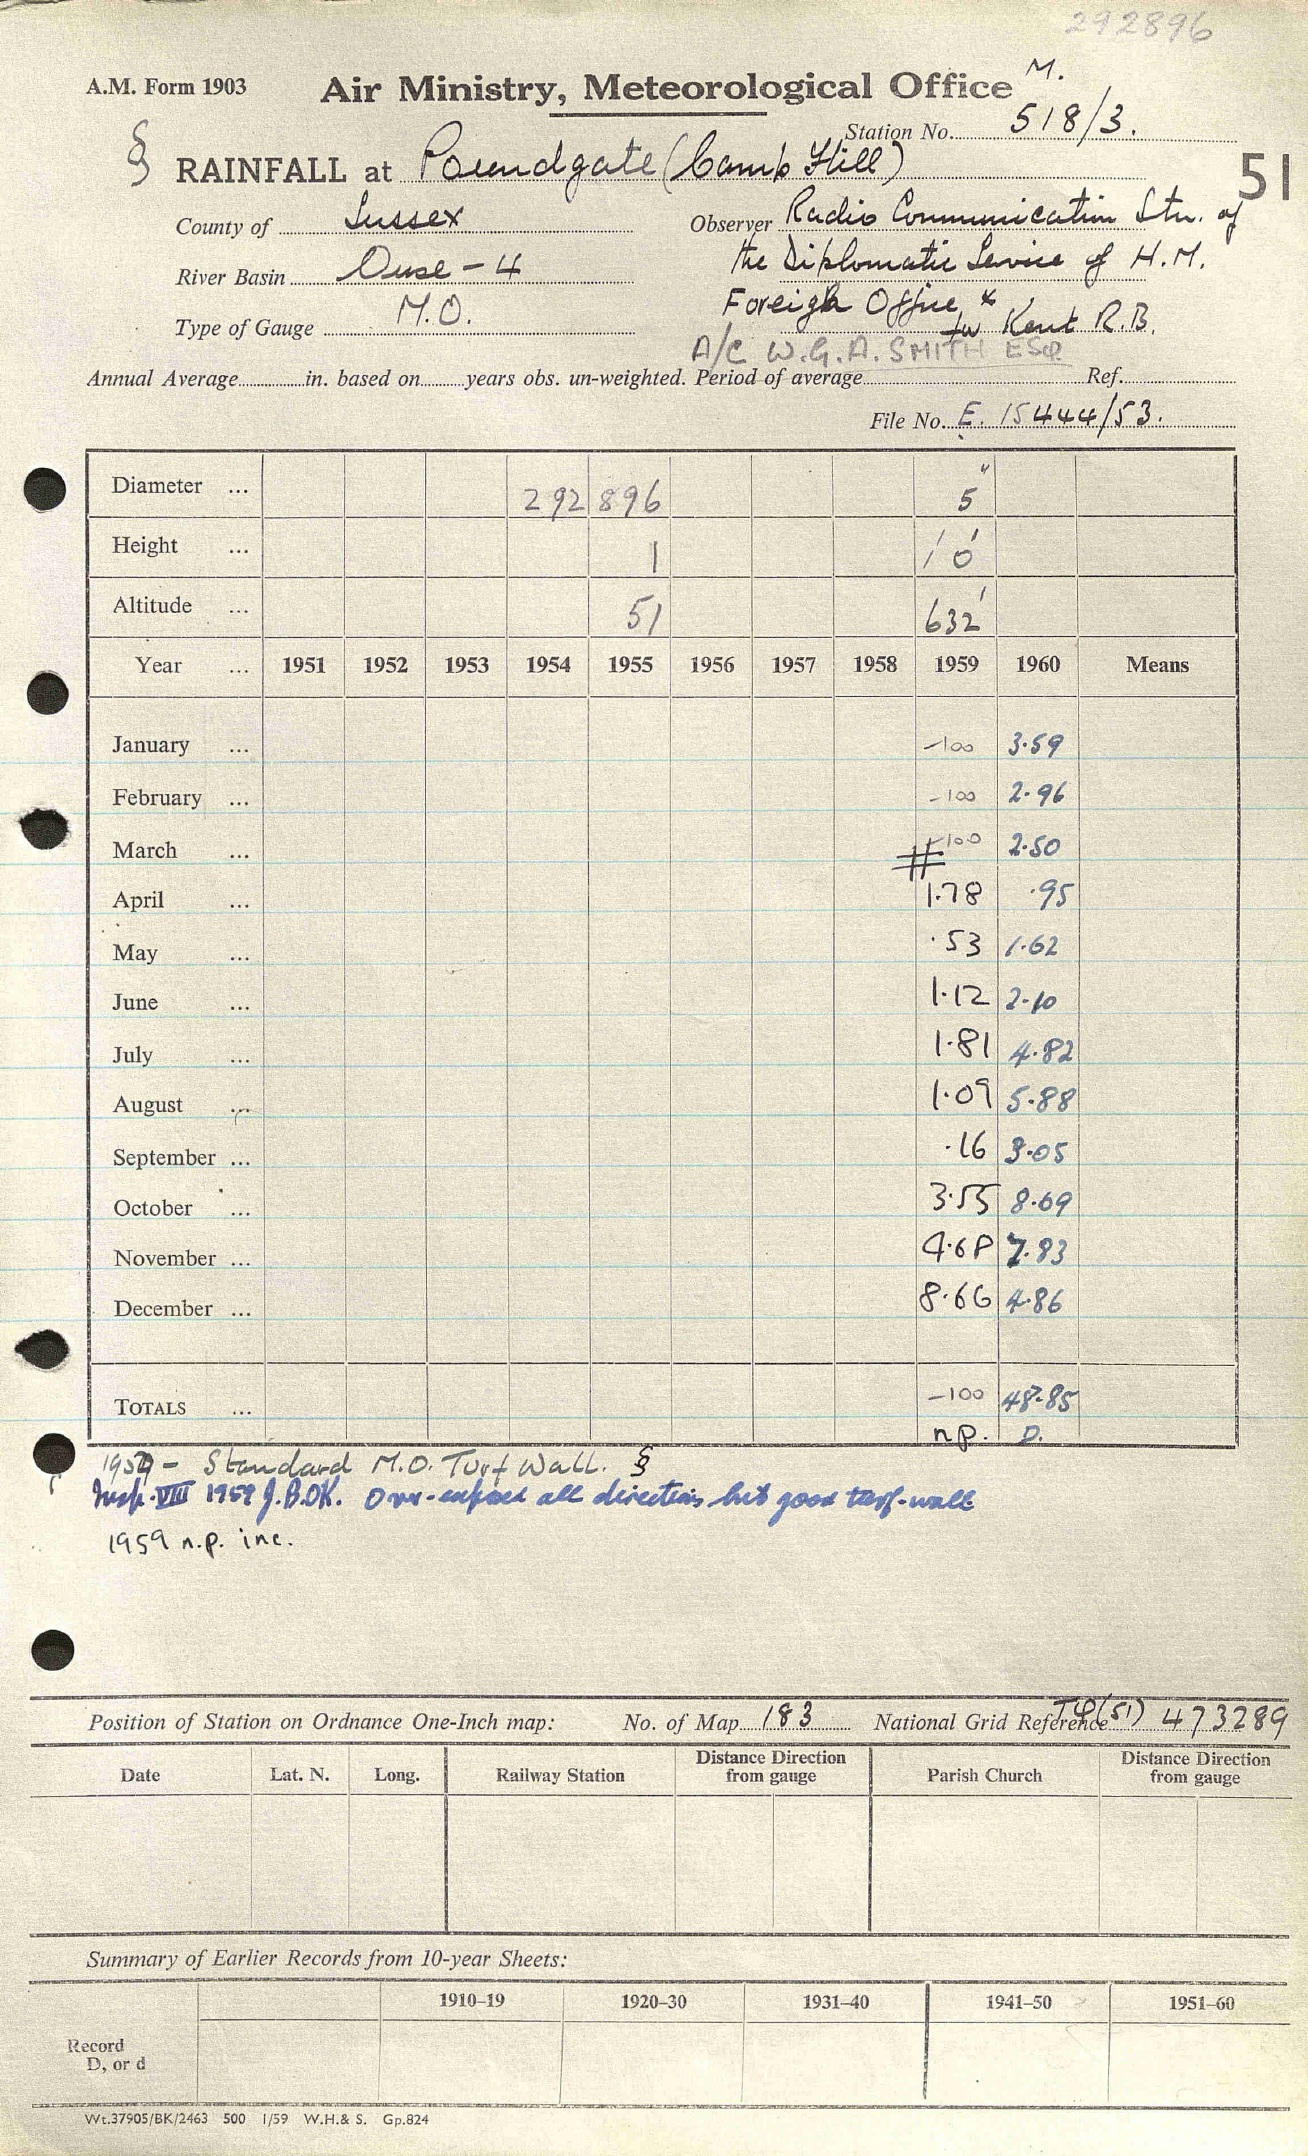 292896
A.M. Form 1903 Air Ministry, Meteorological Office M.
Station No. 518/3.
§ RAINFALL at Poundgate (Camp Hill) 51
County of Sussex Observer Radio Communication Stn. of
River Basin Ouse - 4 the Diplomatic Service of H.M.
Type of Gauge M.O. Foreign Office, * Kent R.B.
A/C W.G.A. SMITH ESQ.
Annual Average in. based on years obs. un-weighted. Period of average Ref.
File No. E. 15444/53.
Diameter ... 292 896 5"
Height ... 1 1' 0'
Altitude ... 51 632'
Year ... 1951 1952 1953 1954 1955 1956 1957 1958 1959 1960 Means
January ... -100 3.59
February ... -100 2.96
March ... -100 2.50
April ... # 1.78 .95
May ... .53 1.62
June ... 1.12 2.10
July ... 1.81 4.82
August ... 1.09 5.88
September ... .16 3.05
October ... 3.55 8.69
November ... 4.68 7.83
December ... 8.66 4.86
TOTALS ... -100 48.85
n.p. D.
1959 - Standard M.O. Turf Wall. §
Insp. VIII 1959 J.B.OK. Over-exposed all directions but good turf-wall
1959 n.p. inc.
Position of Station on Ordnance One-Inch map: No. of Map 183 National Grid Reference TQ(51) 473289
Date Lat. N. Long. Railway Station Distance Direction from gauge Parish Church Distance Direction from gauge
Summary of Earlier Records from 10-year Sheets:
1910–19 1920–30 1931–40 1941–50 1951–60
Record
D, or d
Wt.37905/BK/2463 500 1/59 W.H.& S. Gp.824